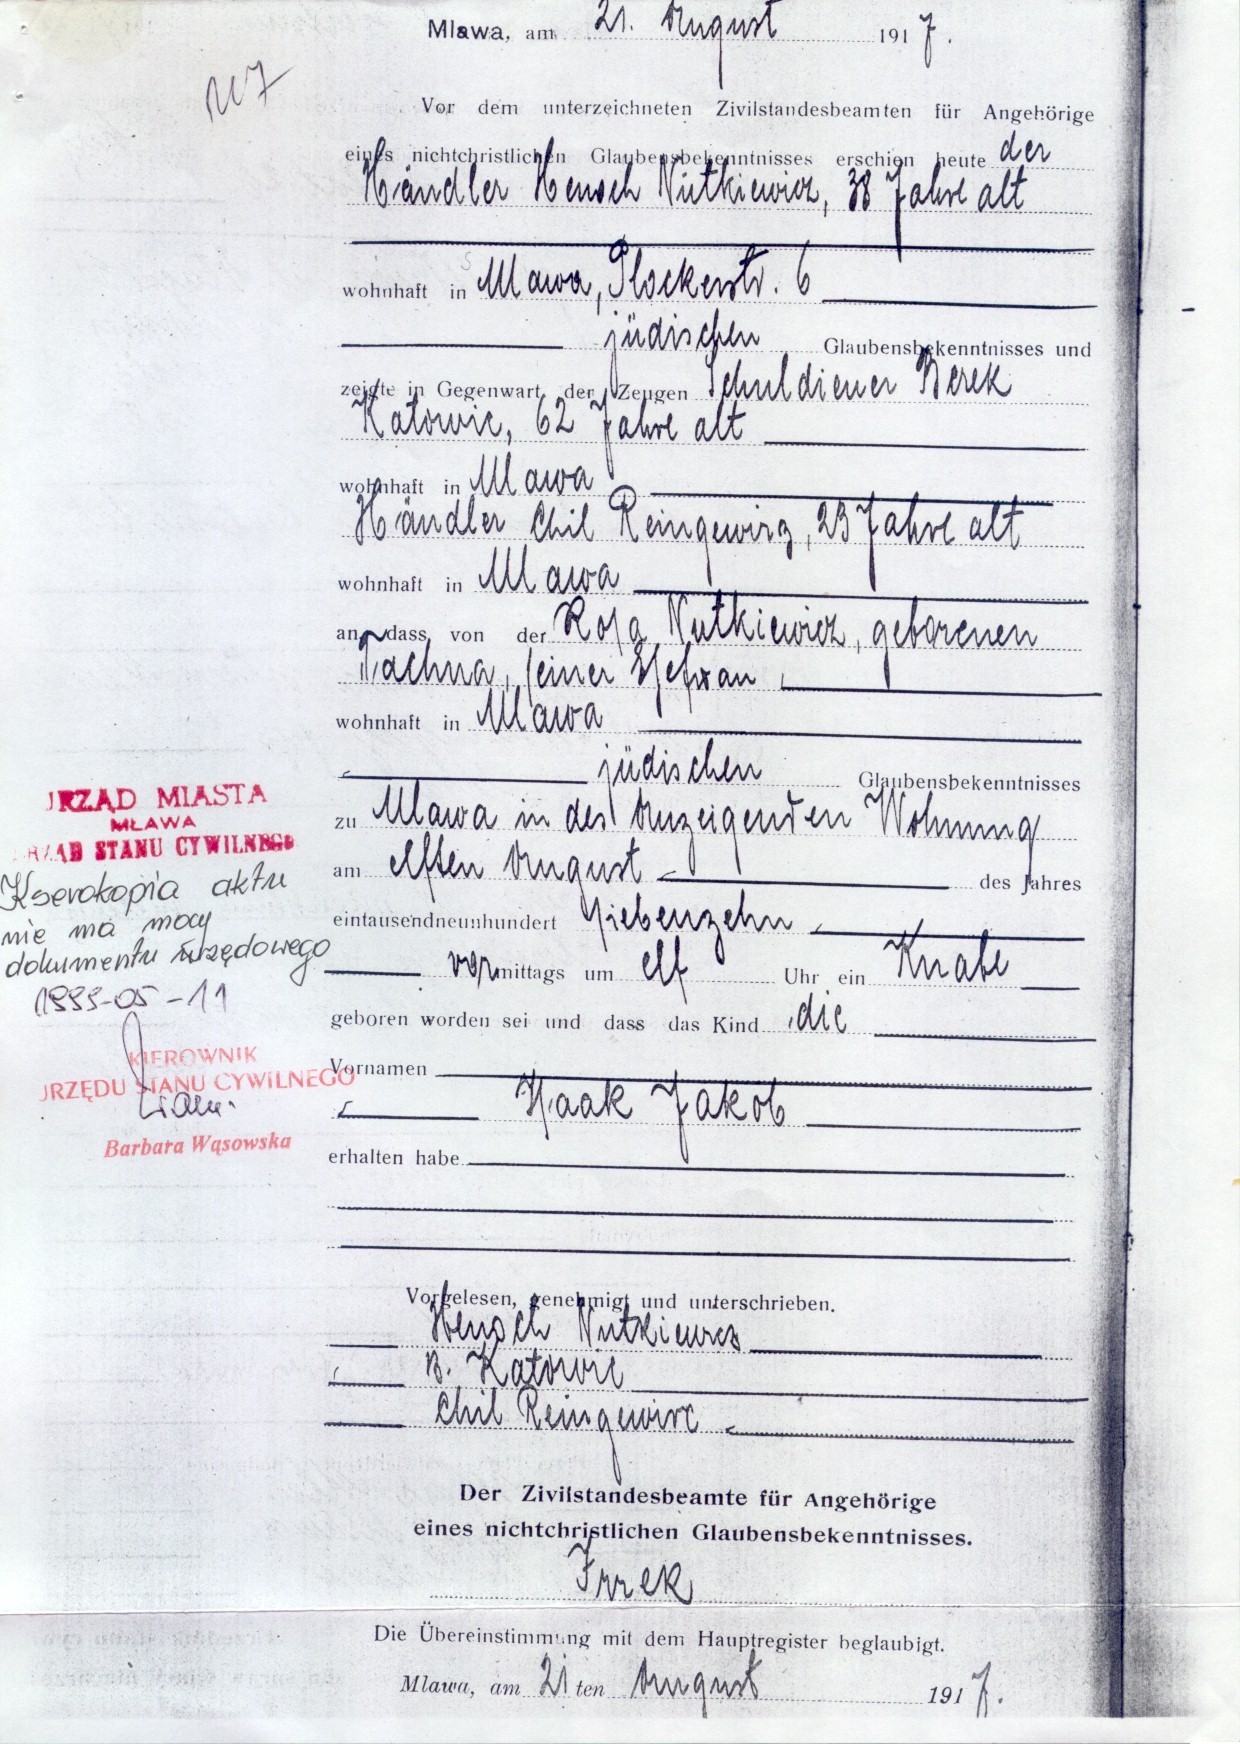 Mlawa, am 21. August 1917.
Vor dem unterzeichneten Zivilstandesbeamten für Angehörige
eines nichtchristlichen Glaubensbekenntnisses erschien heute der
Händler Henoch Nutkiewicz, 38 Jahre alt
wohnhaft in Mlawa, Plockerstr. 6
jüdischen Glaubensbekenntnisses und
zeigte in Gegenwart der Zeugen Schuldiener Berek
Katowic, 62 Jahre alt
wohnhaft in Mlawa
Händler Chil Reingewirz, 23 Jahre alt
wohnhaft in Mlawa
an, dass von der Rosa Nutkiewicz, geborenen
Tachna, seiner Ehefrau,
wohnhaft in Mlawa
jüdischen Glaubensbekenntnisses
zu Mlawa in des Anzeigenden Wohnung
am elften August des Jahres
eintausendneunhundert siebenzehn,
vormittags um elf Uhr ein Knabe
geboren worden sei und dass das Kind die
Vornamen
Isaak Jakob
erhalten habe
Vorgelesen, genehmigt und unterschrieben.
Henoch Nutkiewicz
B. Katowic
Chil Reingewirc
Der Zivilstandesbeamte für Angehörige
eines nichtchristlichen Glaubensbekenntnisses.
Die Übereinstimmung mit dem Hauptregister beglaubigt.
Mlawa, am 21ten August 1917.
URZĄD MIASTA
MŁAWA
URZĄD STANU CYWILNEGO
Kserokopia aktu
nie ma mocy
dokumentu urzędowego
1999-05-11
KIEROWNIK
URZĘDU STANU CYWILNEGO
Barbara Wąsowska